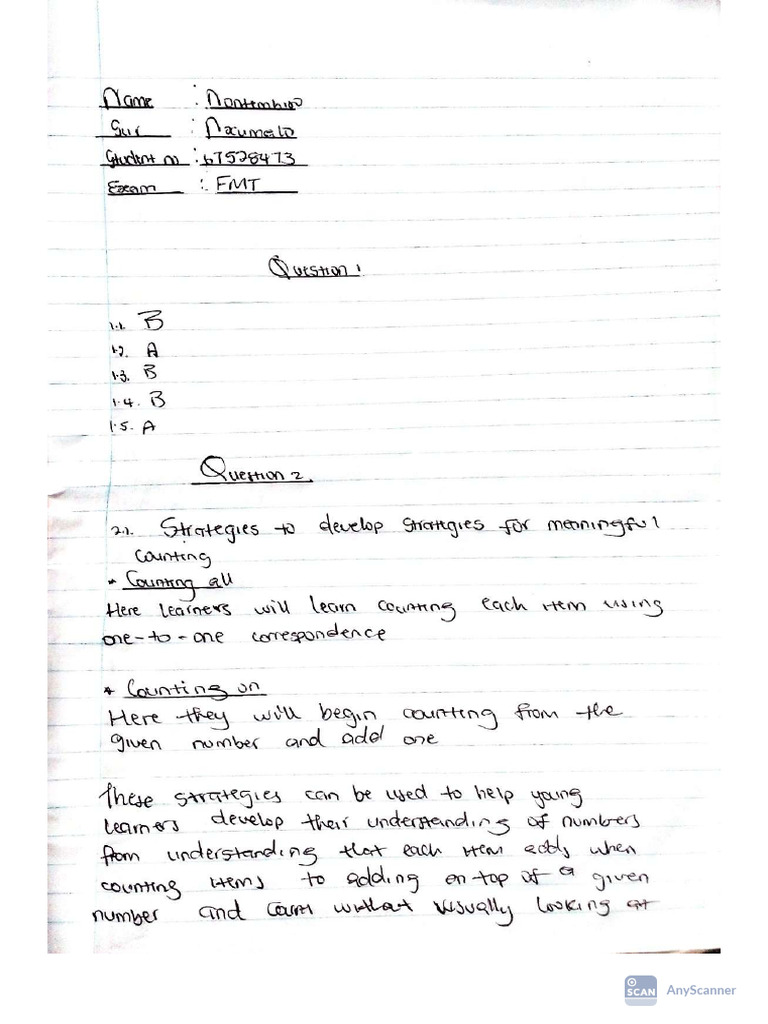 Name : Nontembiso
Sur : Nxumalo
Student no : 67528473
Exam : FMT
Question 1
1.1. B
1.2. A
1.3. B
1.4. B
1.5. A
Question 2.
2.1. Strategies to develop strategies for meaningful
counting
* Counting all
Here learners will learn counting each item using
one-to-one correspondence
* Counting on
Here they will begin counting from the
given number and add one
These strategies can be used to help young
learners develop their understanding of numbers
from understanding that each item adds when
counting items to adding on top of a given
number and count without visually looking at
SCAN AnyScanner